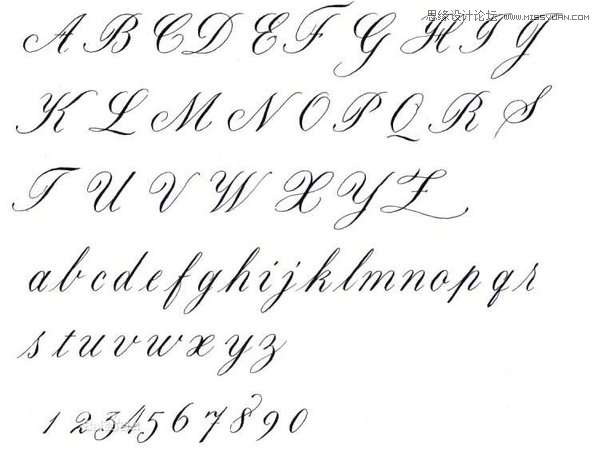 思缘设计论坛 WWW.MISSYUAN.COM
A B C D E F G H I J
K L M N O P Q R S
T U V W X Y Z
a b c d e f g h i j k l m n o p q r
s t u v w x y z
1 2 3 4 5 6 7 8 9 0